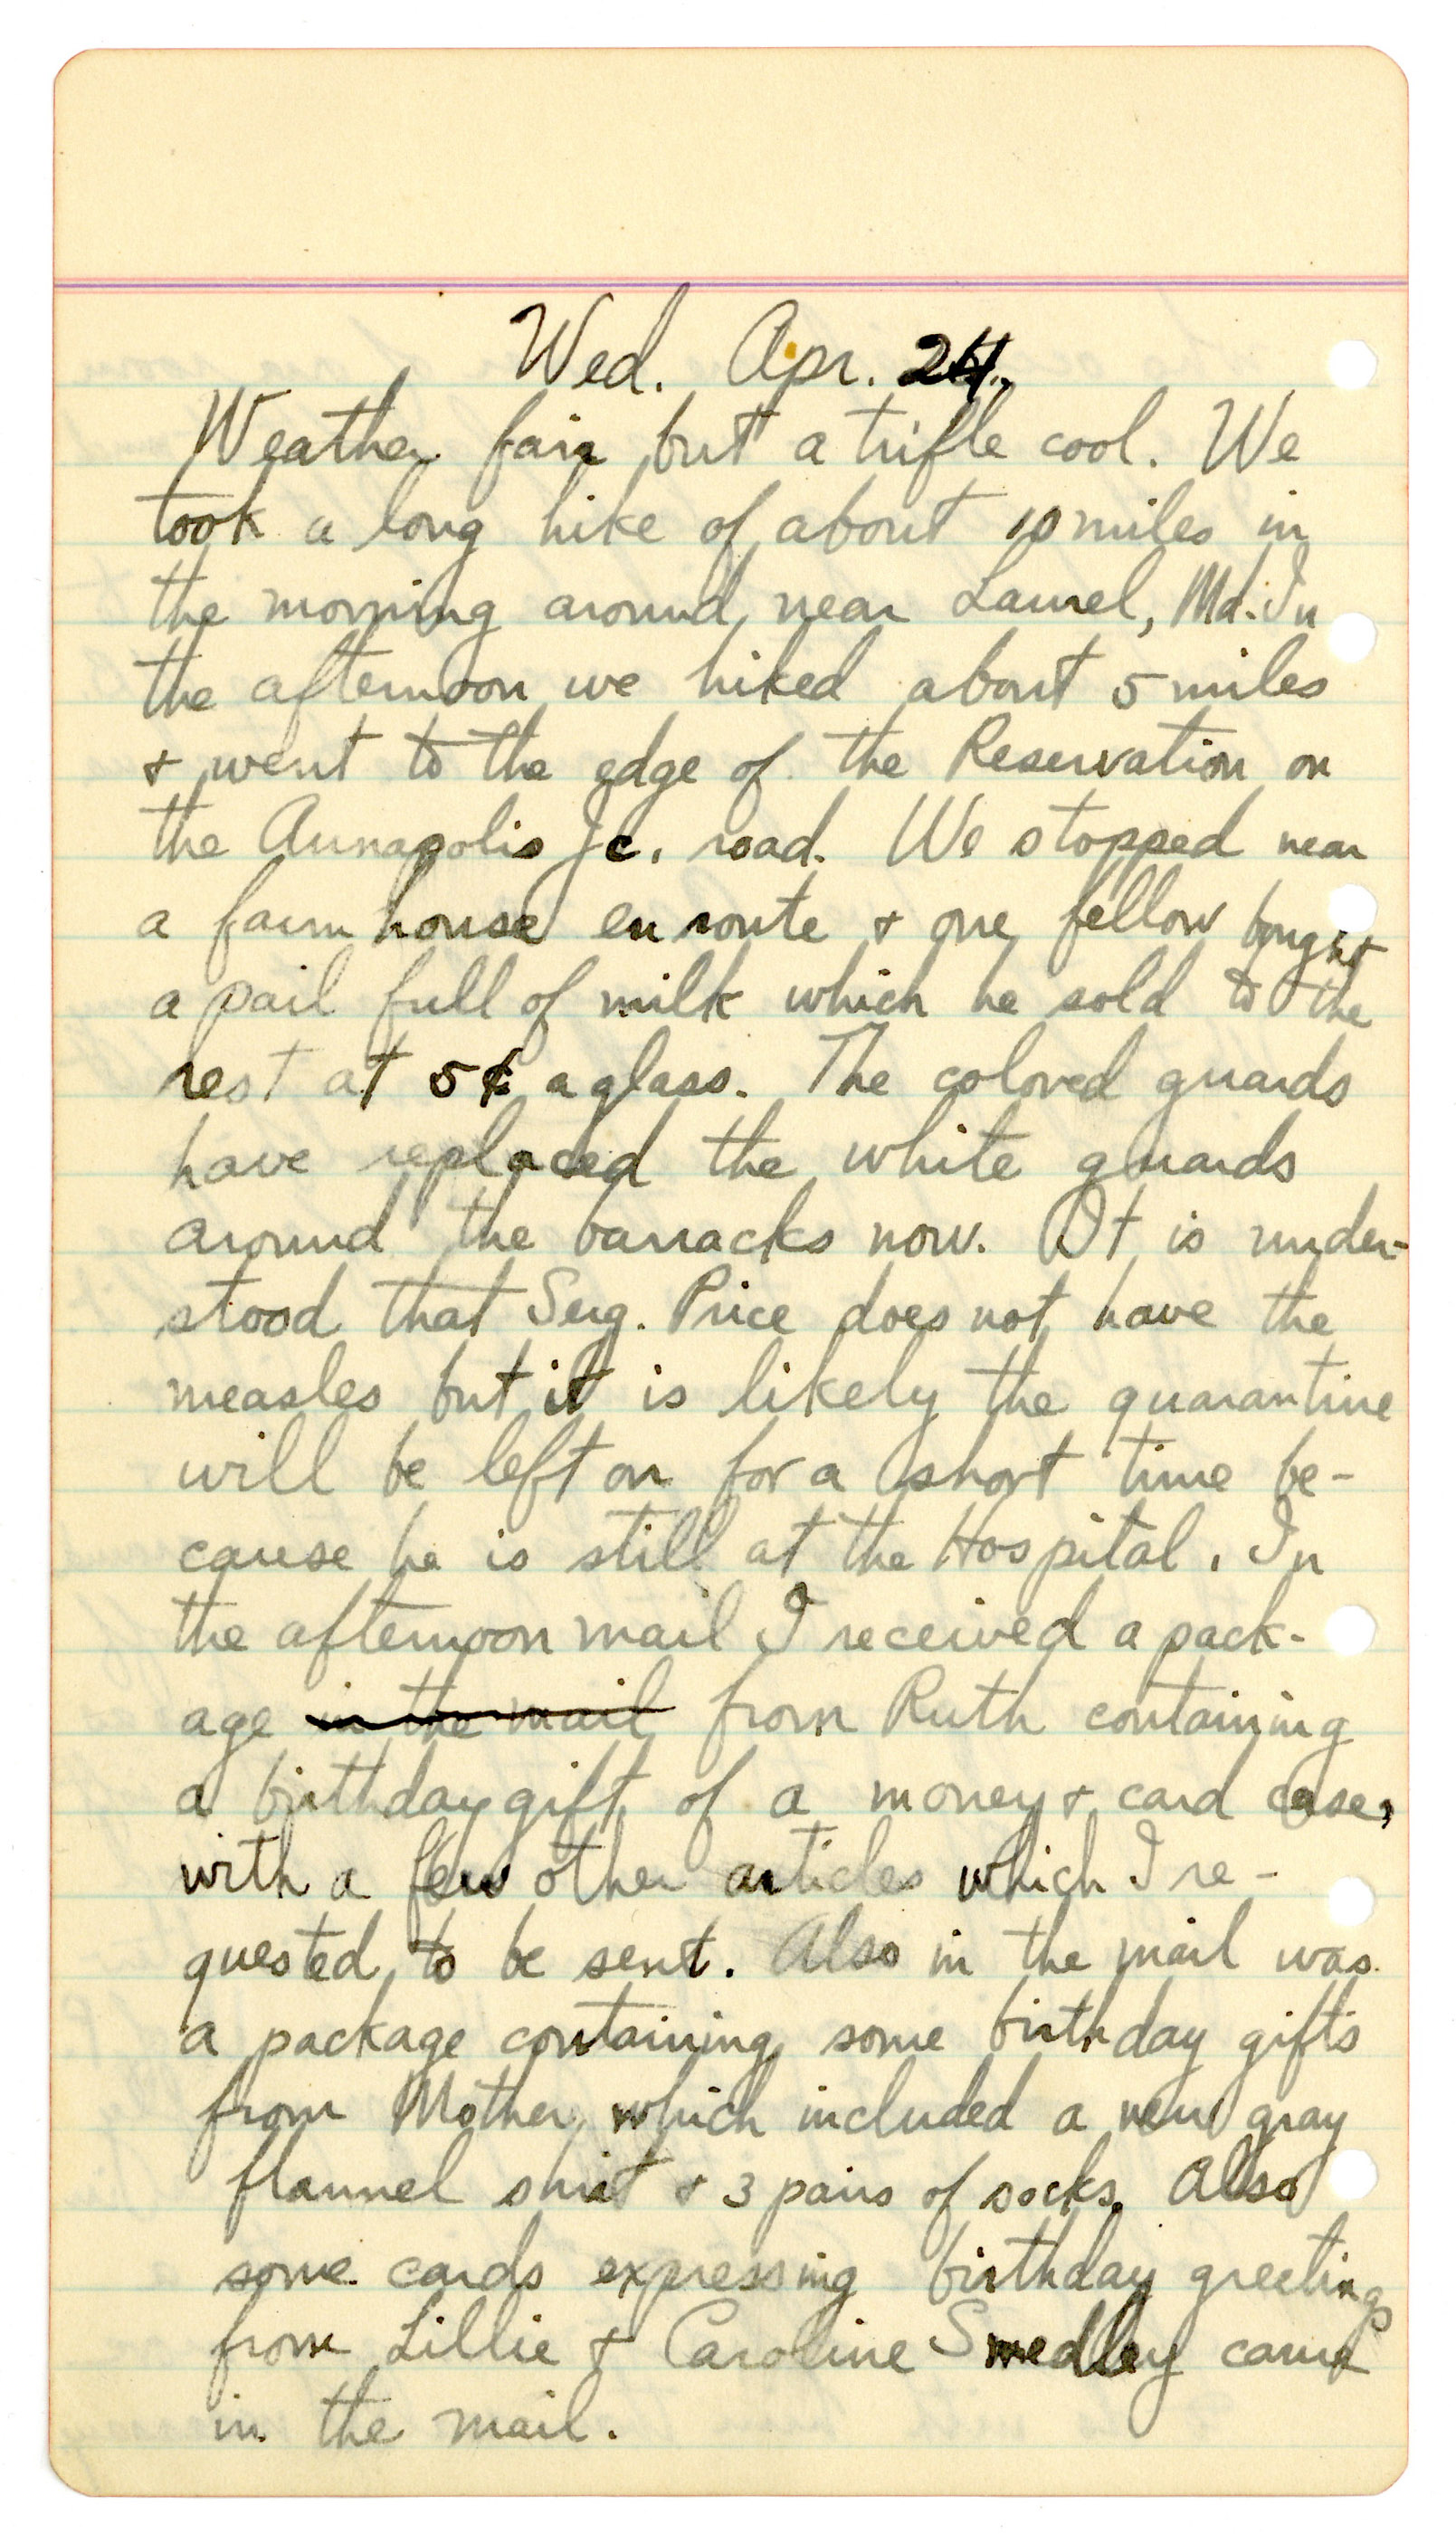 Wed. Apr. 24.
Weather fair but a trifle cool. We
took a long hike of about 10 miles in
the morning around near Laurel, Md. In
the afternoon we hiked about 5 miles
+ went to the edge of the Reservation on
the Annapolis Jc. road. We stopped near
a farm house en route + one fellow bought
a pail full of milk which he sold to the
rest at 5¢ a glass. The colored guards
have replaced the white guards
around the barracks now. It is under-
stood that Serg. Price does not have the
measles but it is likely the quarantine
will be left on for a short time be-
cause he is still at the Hospital. In
the afternoon mail I received a pack-
age in the mail from Ruth containing
a birthday gift of a money + card case,
with a few other articles which I re-
quested to be sent. Also in the mail was
a package containing some birthday gifts
from Mother, which included a new gray
flannel shirt + 3 pairs of socks. Also
some cards expressing birthday greetings
from Lillie + Caroline Smedley came
in the mail.